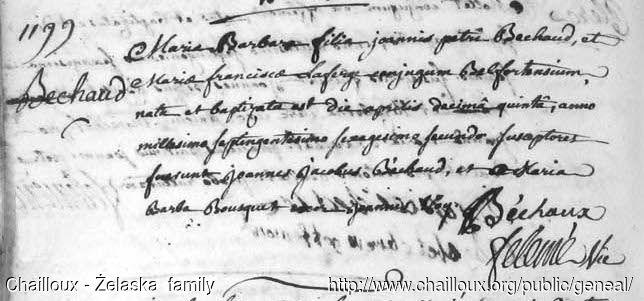 1199
Bechaud
Maria Barbara filia joannis petri Bechaud, et
Mariæ franciscæ conjugum Belfortensium,
nata et baptizata est die aprilis decimâ quintâ, anno
millesimo septingentesimo sexagesimo secundo susceptores
fuerunt Joannes Jacobus Béchaud, et Maria
Barba Bousquet uxor joannis
Béchaux
Vic
Chailloux - Żelaska family
http://www.chailloux.org/public/geneal/